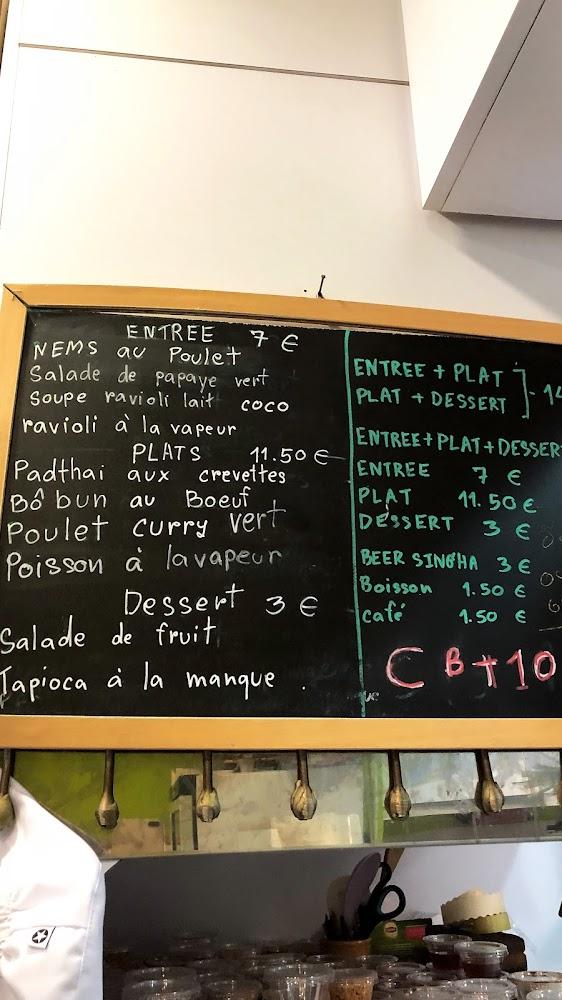 ENTREE 7 €
NEMS au Poulet
Salade de papaye vert
Soupe ravioli lait coco
ravioli à la vapeur
PLATS 11.50 €
Padthai aux crevettes
Bô bun au Boeuf
Poulet curry vert
Poisson à la vapeur
Dessert 3 €
Salade de fruit
Tapioca à la mangue .
ENTREE + PLAT
PLAT + DESSERT ] - 14
ENTREE+PLAT+DESSER
ENTREE 7 €
PLAT 11.50 €
DESSERT 3 €
BEER SINGHA 3 €
Boisson 1.50 €
café 1.50 €
CB + 10